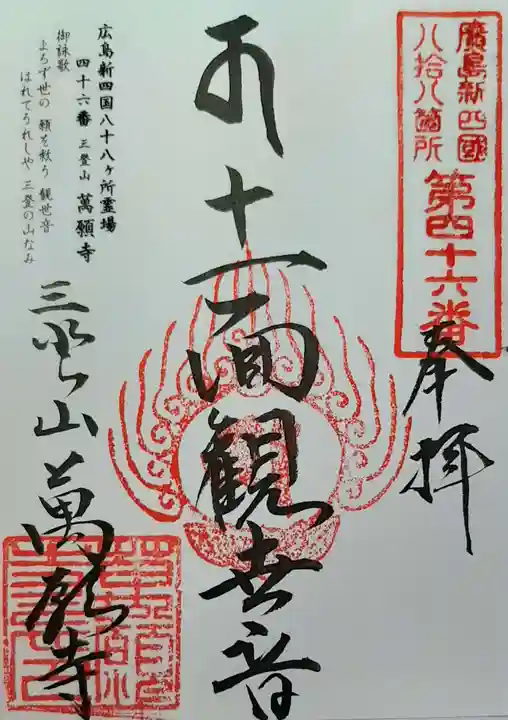 廣島新四國
八拾八箇所
第四十六番
奉拝
十一面観世音
三登山
萬願寺
広島新四国八十八ヶ所霊場
四十六番 三登山 萬願寺
御詠歌
よろず世の 願を救う 観世音
はれてうれしや 三登の山なみ